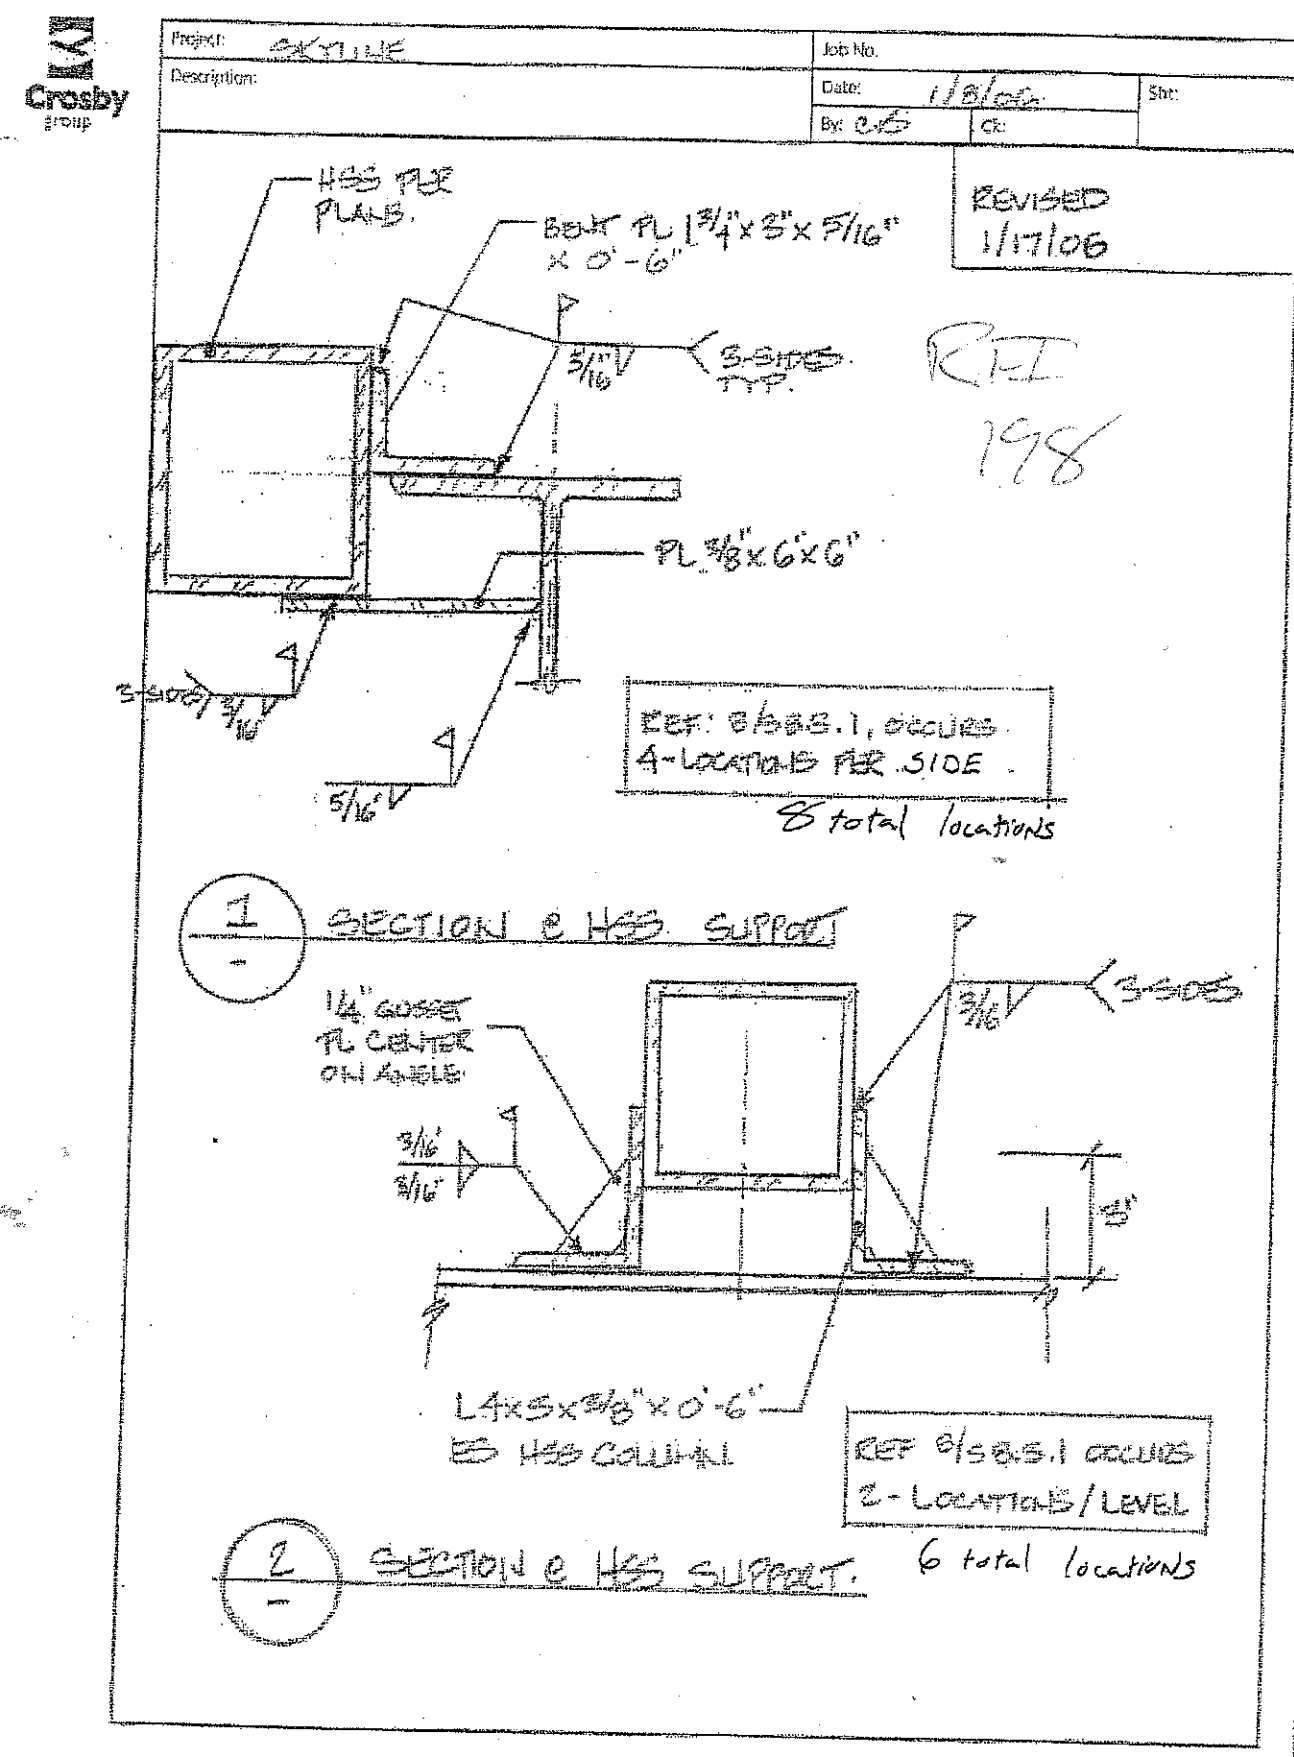 Crosby
group
Project: SKYLINE
Job No.
Description:
Date: 1/8/06
Sht:
By: CS
Ck:
REVISED
1/17/06
RFI
198
HSS PER
PLANS.
BENT PL 1 3/4" x 3" x 5/16"
x 0'-6"
3/16"
3-SIDES
TYP.
PL 3/8" x 6" x 6"
3-SIDES
3/16
5/16"
REF: 8/S8.5.1, OCCURS
4-LOCATIONS PER SIDE
8 total locations
1
-
SECTION @ HSS SUPPORT
1/4" GUSSET
PL CENTER
ON ANGLE.
3/16
3-SIDES
3/16"
3/16"
3"
L4x3x3/8" x 0'-6"
ES HSS COLUMN
REF 8/S8.5.1 OCCURS
2-LOCATIONS/LEVEL
6 total locations
2
-
SECTION @ HSS SUPPORT.